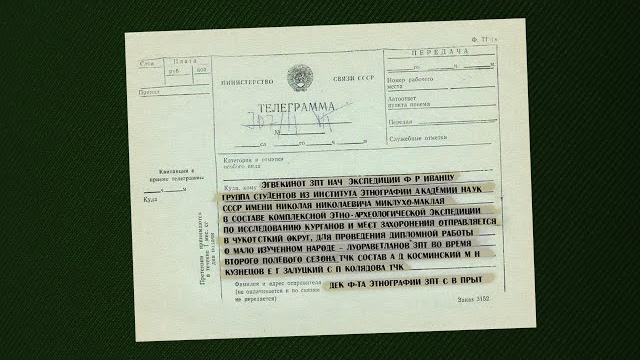 Ф. ТГ-1а
Слов
Плата
руб
коп
Принял
Квитанция о
приеме телеграммы
Куда
Претензии принимаются
в течение 1 мес. со
дня подачи
МИНИСТЕРСТВО СВЯЗИ СССР
ТЕЛЕГРАММА
сл. го ч. м
Категория и отметки
особого вида
ПЕРЕДАЧА
го ч. м
Номер рабочего
места
Автоответ
пункта приема
Передал
Служебные отметки
Куда, кому
ЭГВЕКИНОТ ЗПТ НАЧ ЭКСПЕДИЦИИ Ф Р ИВАНЦУ
ГРУППА СТУДЕНТОВ ИЗ ИНСТИТУТА ЭТНОГРАФИИ АКАДЕМИИ НАУК
СССР ИМЕНИ НИКОЛАЯ НИКОЛАЕВИЧА МИКЛУХО-МАКЛАЯ
В СОСТАВЕ КОМПЛЕКСНОЙ ЭТНО-АРХЕОЛОГИЧЕСКОЙ ЭКСПЕДИЦИИ
ПО ИССЛЕДОВАНИЮ КУРГАНОВ И МЕСТ ЗАХОРОНЕНИЯ ОТПРАВЛЯЕТСЯ
В ЧУКОТСТКИЙ ОКРУГ, ДЛЯ ПРОВЕДЕНИЯ ДИПЛОМНОЙ РАБОТЫ
О МАЛО ИЗУЧЕННОМ НАРОДЕ – ЛУОРАВЕТЛАНОВ ЗПТ ВО ВРЕМЯ
ВТОРОГО ПОЛЕВОГО СЕЗОНА ТЧК СОСТАВ А Д КОСМИНСКИЙ М Н
КУЗНЕЦОВ Е Г ЗАЛУЦКИЙ С П КОЛЯДОВА ТЧК
Фамилия и адрес отправителя
(не оплачивается и по связи
не передается)
ДЕК Ф-ТА ЭТНОГРАФИИ ЗПТ С В ПРЫТ
Заказ 3152